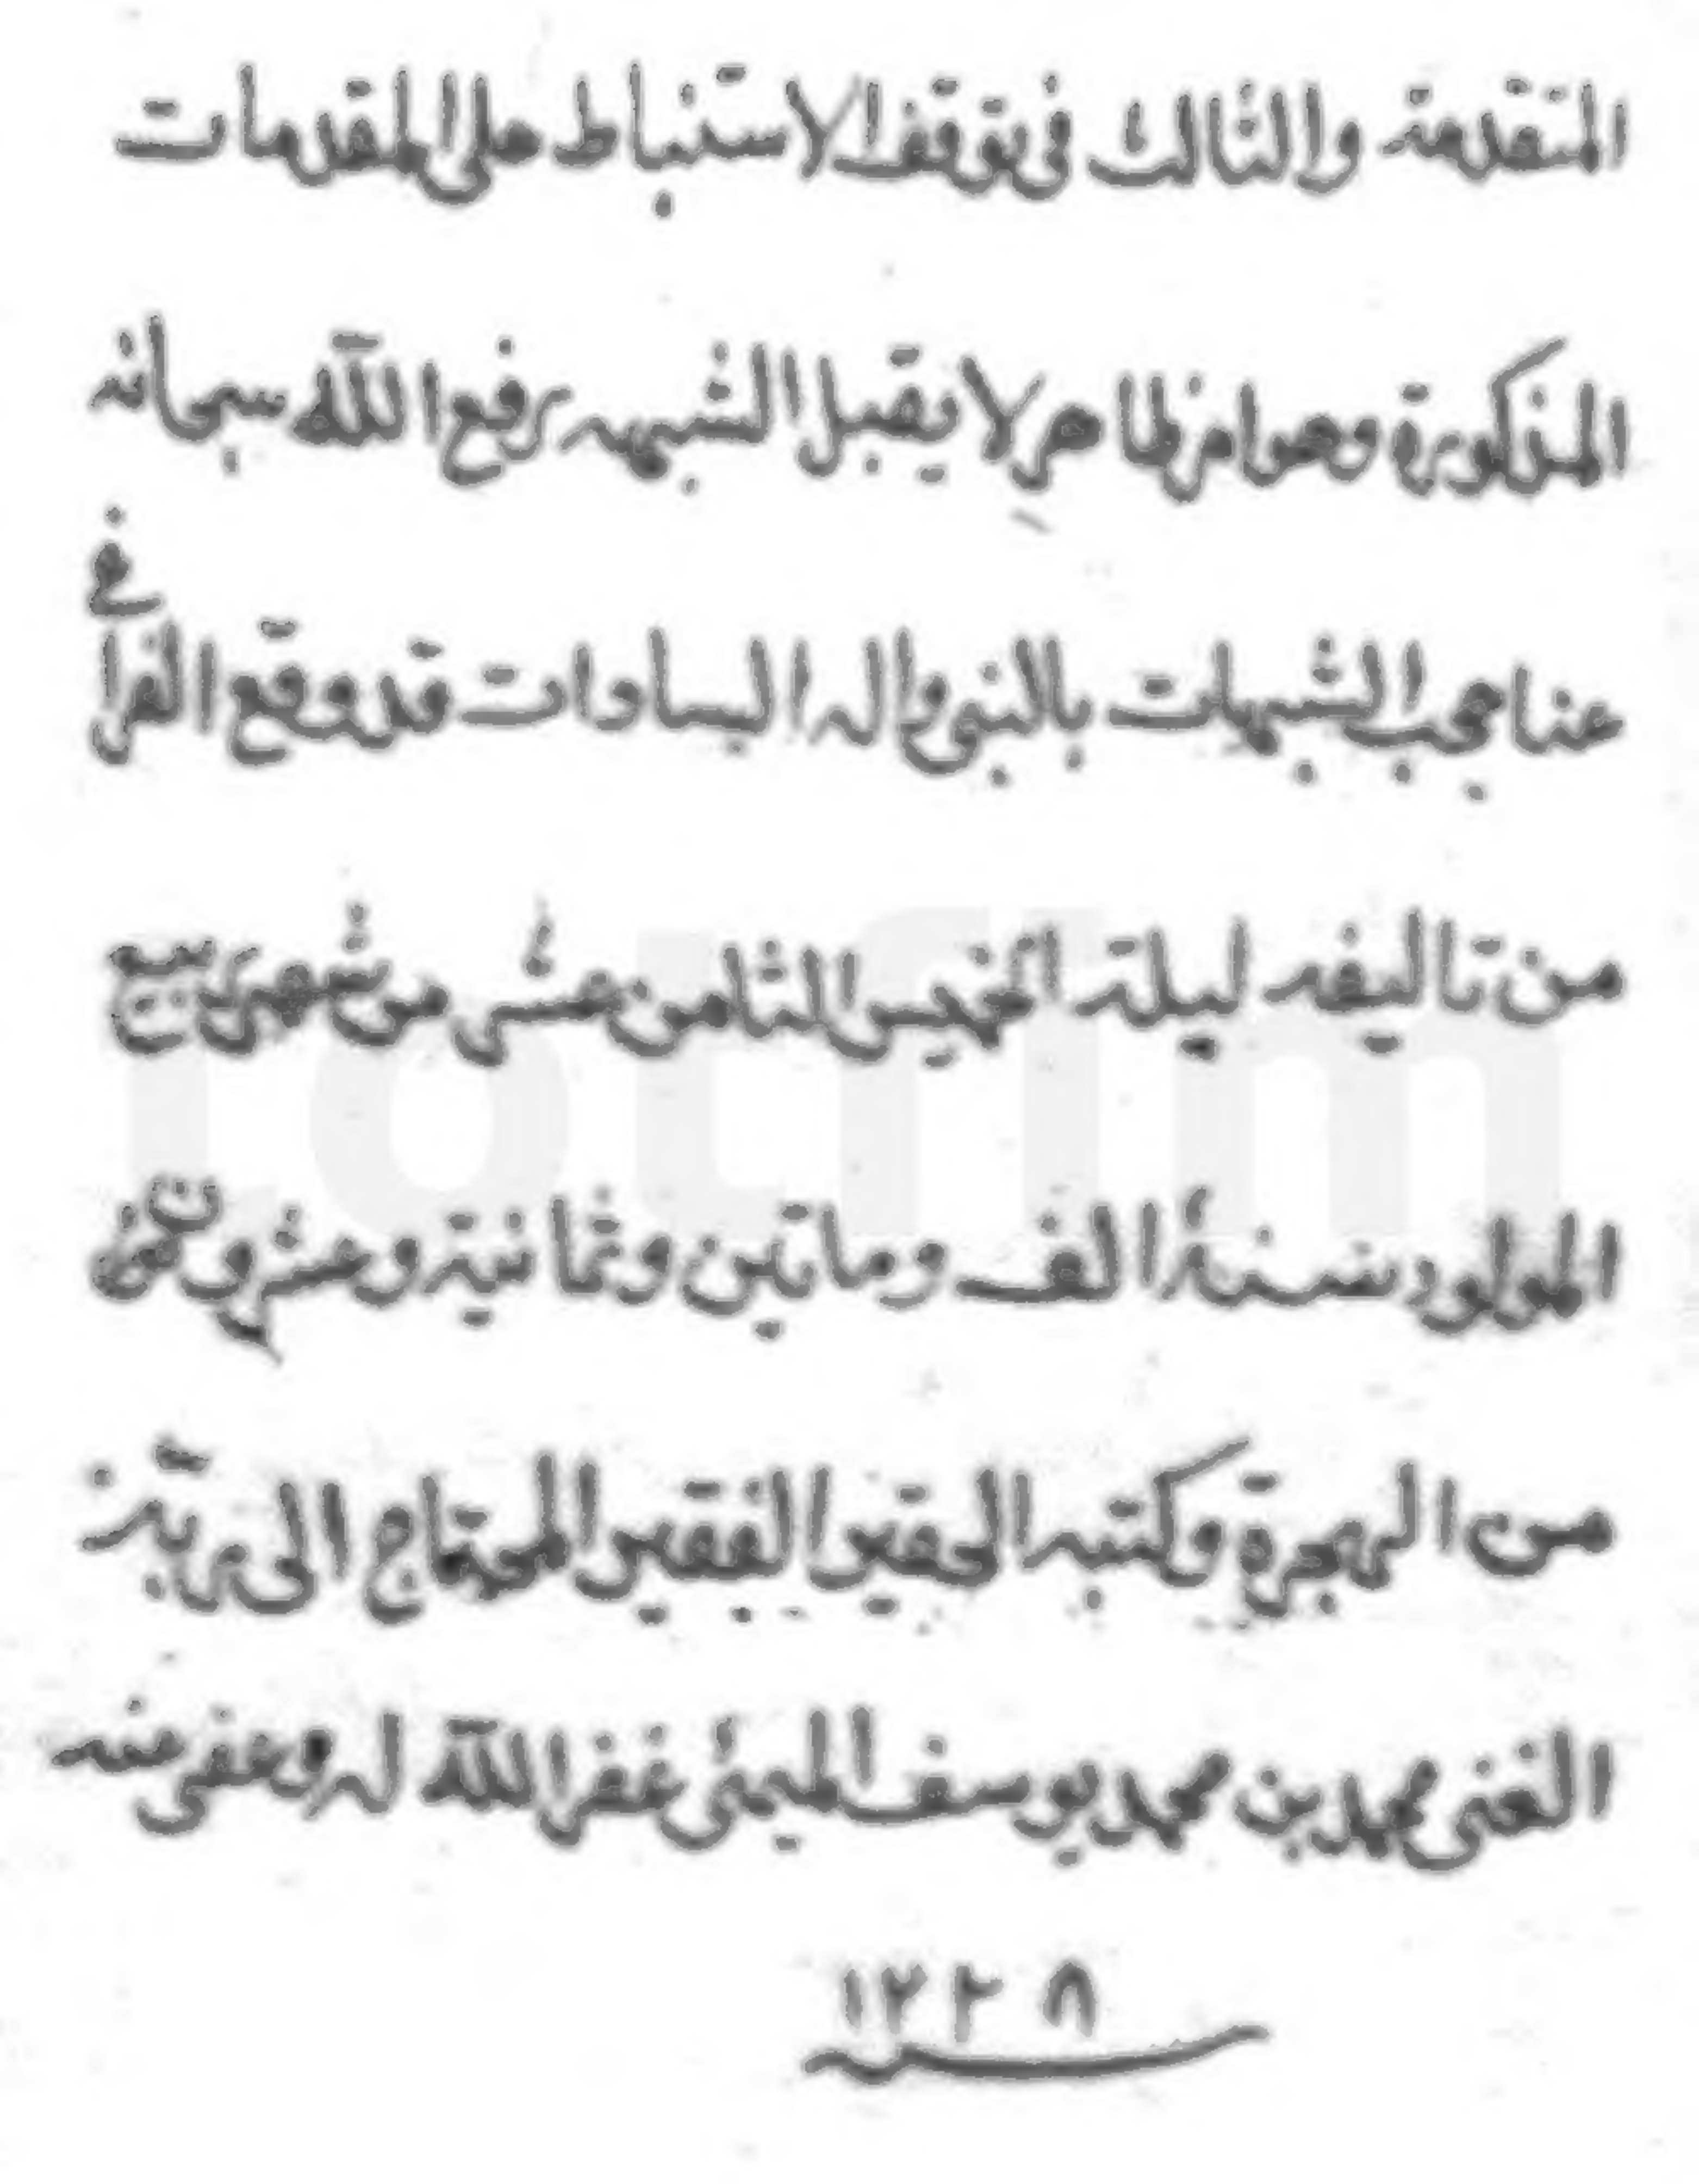 المتقدمة والثالث في توقف الاستنباط على المقدمات
المذكورة وهو امر ظاهر لا يقبل الشبهه رفع الله سبحانه
عنا حجب الشبهات بالنبي واله السادات قد وقع الفراغ
من تاليفه ليلة الخميس الثامن عشر من شهر ربيع
المولود سنة الف وماتين وثمانية وعشرون
من الهجرة وكتبه الحقير الفقير المحتاج الى ربه
الغني محمد بن محمد يوسف غفر الله له وعفى عنه
١٢٢٨